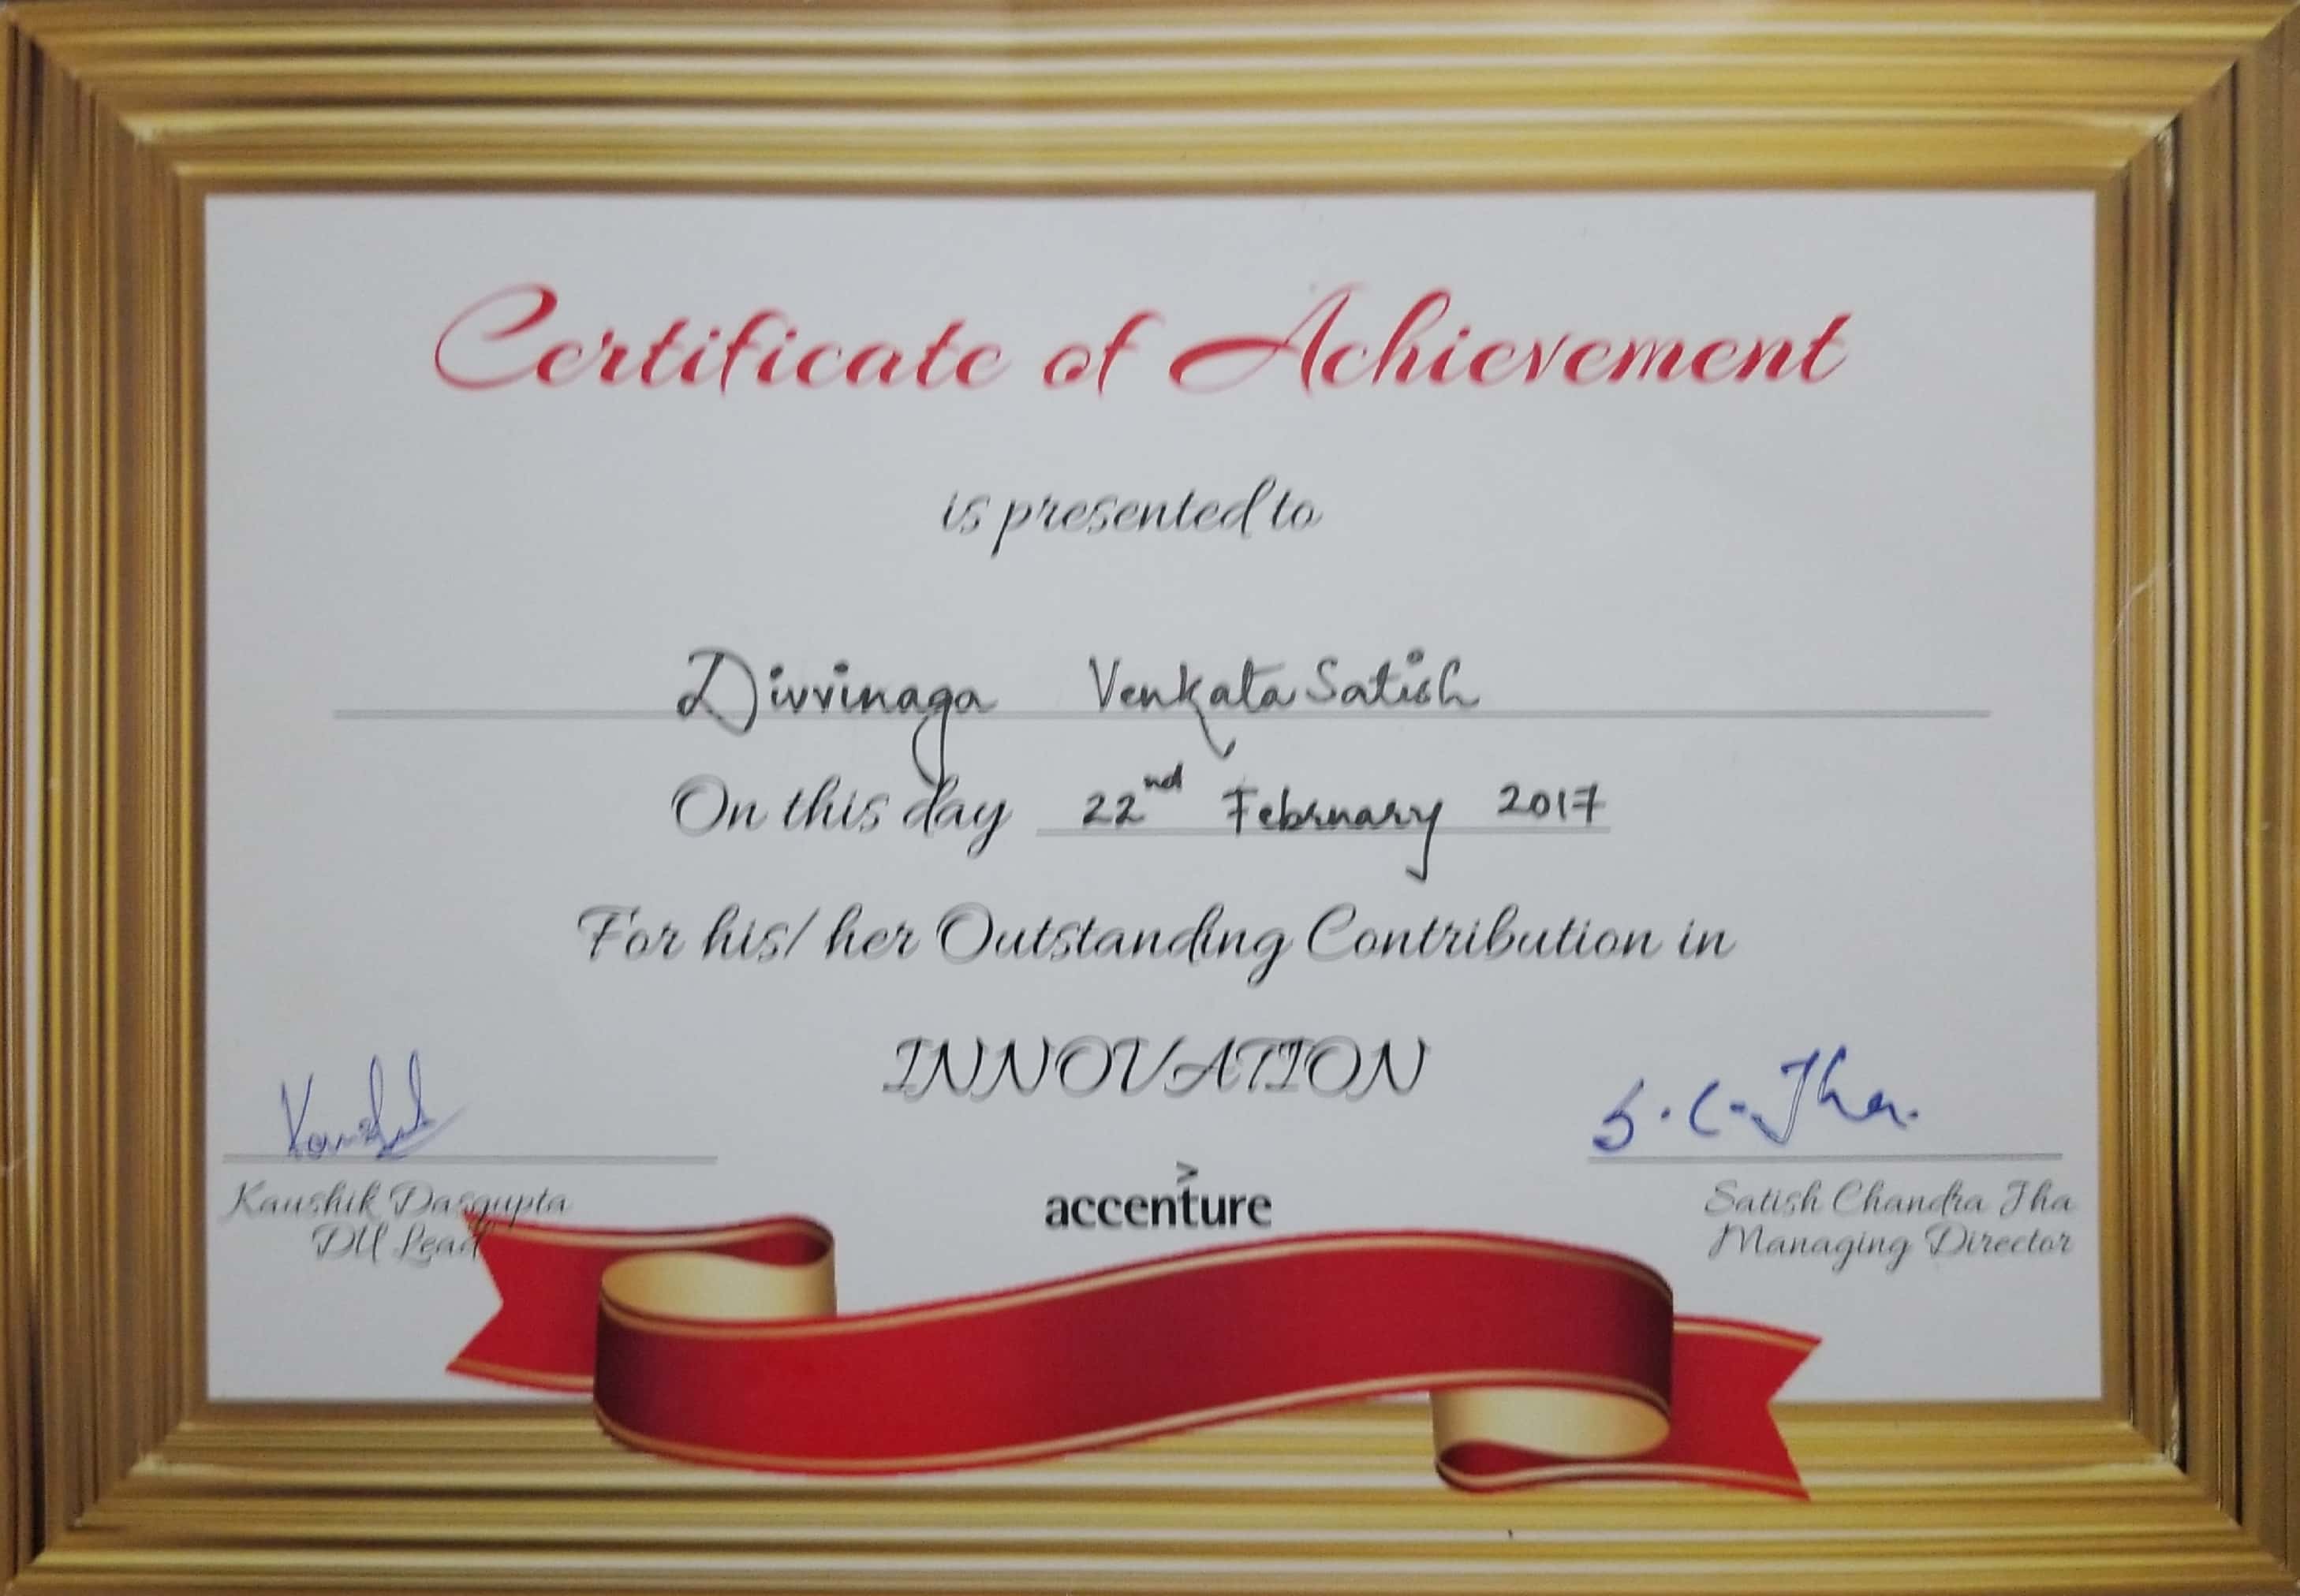 Certificate of Achievement
is presented to
Divvinaga Venkata Satish
On this day 22nd February 2017
For his/ her Outstanding Contribution in
INNOVATION
Kaushik
S. C. Jha.
Kaushik Dasgupta
DU Lead
accenture
Satish Chandra Jha
Managing Director